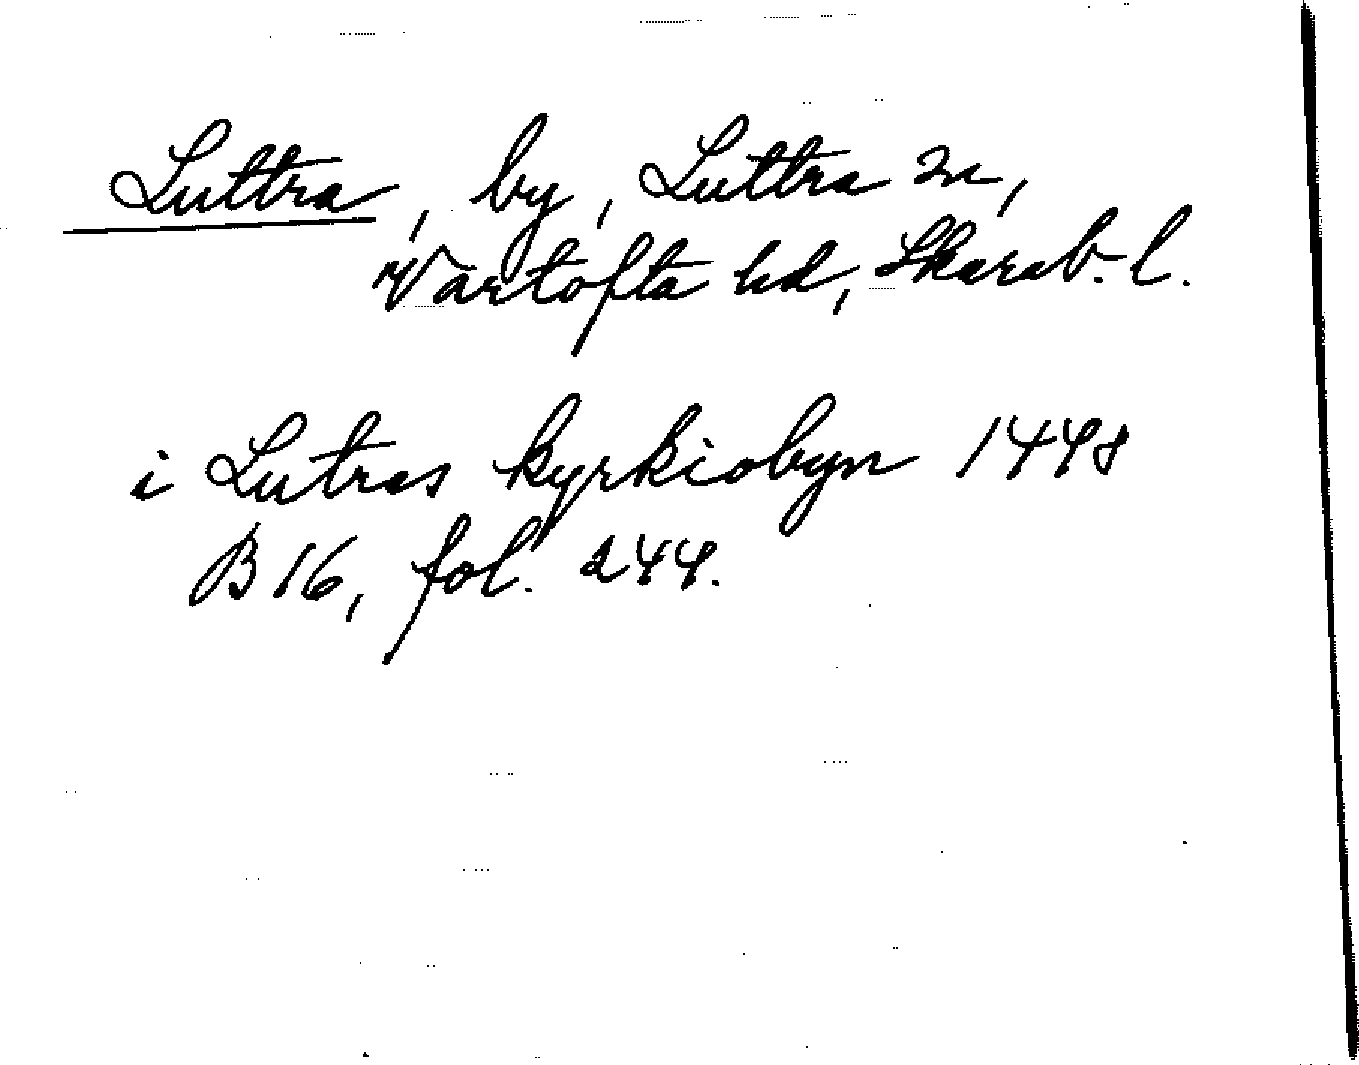 Luttra, by, Luttra sn,
Vartofta hd, Skarab. l.
i Lutras kyrkiobyn 1448
B 16, fol. 244.